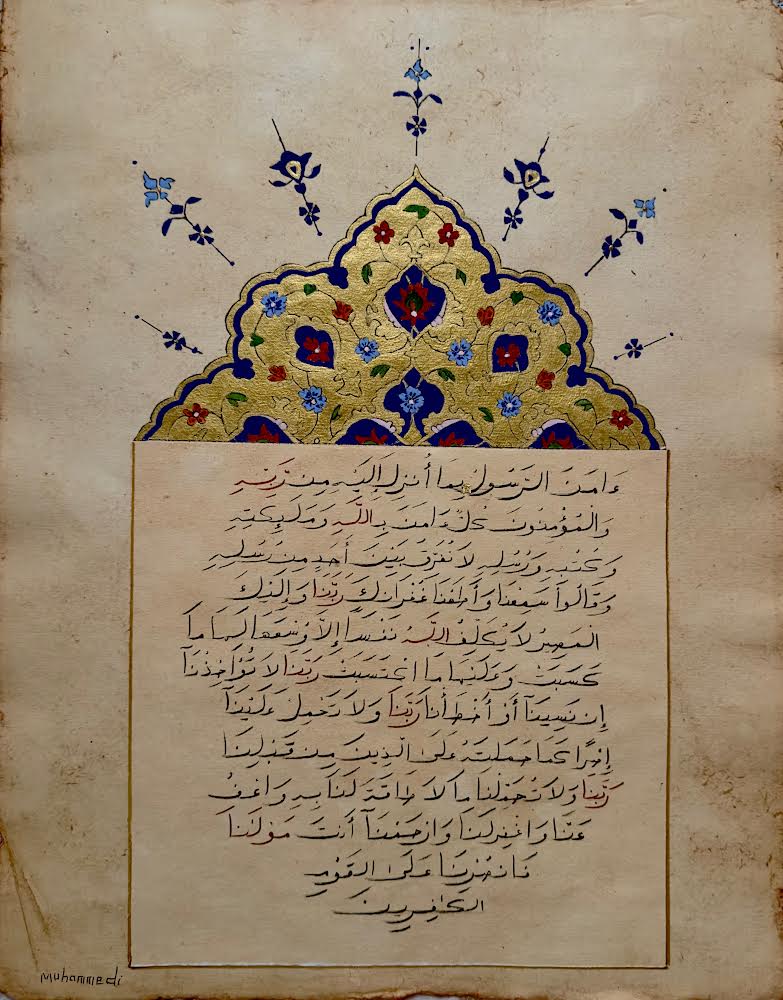 ءَامَنَ الرَّسُولُ بِمَا أُنزِلَ إِلَيْهِ مِن رَّبِّهِ
وَالْمُؤْمِنُونَ كُلٌّ ءَامَنَ بِاللَّهِ وَمَلَٰٓئِكَتِهِ
وَكُتُبِهِ وَرُسُلِهِ لَا نُفَرِّقُ بَيْنَ أَحَدٍ مِّن رُّسُلِهِ
وَقَالُوا سَمِعْنَا وَأَطَعْنَا غُفْرَانَكَ رَبَّنَا وَإِلَيْكَ
الْمَصِيرُ لَا يُكَلِّفُ اللَّهُ نَفْسًا إِلَّا وُسْعَهَا لَهَا مَا
كَسَبَتْ وَعَلَيْهَا مَا اكْتَسَبَتْ رَبَّنَا لَا تُؤَاخِذْنَآ
إِن نَّسِينَآ أَوْ أَخْطَأْنَا رَبَّنَا وَلَا تَحْمِلْ عَلَيْنَآ
إِصْرًا كَمَا حَمَلْتَهُ عَلَى الَّذِينَ مِن قَبْلِنَا
رَبَّنَا وَلَا تُحَمِّلْنَا مَا لَا طَاقَةَ لَنَا بِهِ وَاعْفُ
عَنَّا وَاغْفِرْ لَنَا وَارْحَمْنَآ أَنتَ مَوْلَىٰنَا
فَانصُرْنَا عَلَى الْقَوْمِ
الْكَٰفِرِينَ
Muhammedi